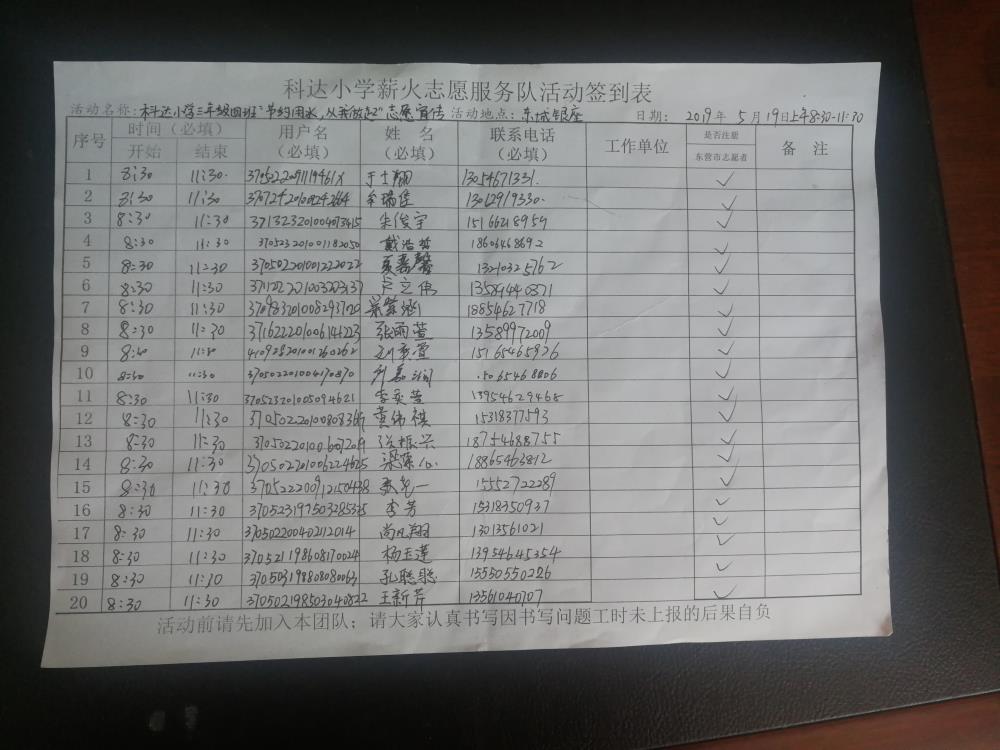 科达小学薪火志愿服务队活动签到表
活动名称: 科达小学三年级四班"节约用水,从我做起"志愿宣传 活动地点: 东城银座 日期: 2019年5月19日上午8:30-11:30
序号 时间（必填） 用户名（必填） 姓 名（必填） 联系电话（必填） 工作单位 是否注册东营市志愿者 备 注
开始 结束
1 8:30 11:30 37052220091119461X 于士翔 13054671331. ✓
2 8:30 11:30 ✓
3 8:30 11:30 371323201004073415 朱俊宇 15166218959 ✓
4 8:30 11:30 370523201001182050 戴浩哲 ✓
5 8:30 11:30 370502201001222022 13210325762 ✓
6 8:30 11:30 卢立伟 13589440871 ✓
7 8:30 11:30 18854627718 ✓
8 8:30 11:30 371622201006144223 张雨萱 13589972009 ✓
9 8:30 11:30 410928201001260262 15165465926 ✓
10 8:30 11:30 370502201004170870 ✓
11 8:30 11:30 370523201005094621 李奕萱 13954629468 ✓
12 8:30 11:30 黄伟祺 15318377593 ✓
13 8:30 11:30 张振兴 18754688755 ✓
14 8:30 11:30 370502201006224625 18865463812 ✓
15 8:30 11:30 15552722289 ✓
16 8:30 11:30 李芳 15318350937 ✓
17 8:30 11:30 尚凡翔 13013561021 ✓
18 8:30 11:30 370521198608170024 杨玉莲 13954645354 ✓
19 8:30 11:30 孔聪聪 15550550226 ✓
20 8:30 11:30 370502198503040822 王新芳 13561040707 ✓
活动前请先加入本团队；请大家认真书写因书写问题工时未上报的后果自负